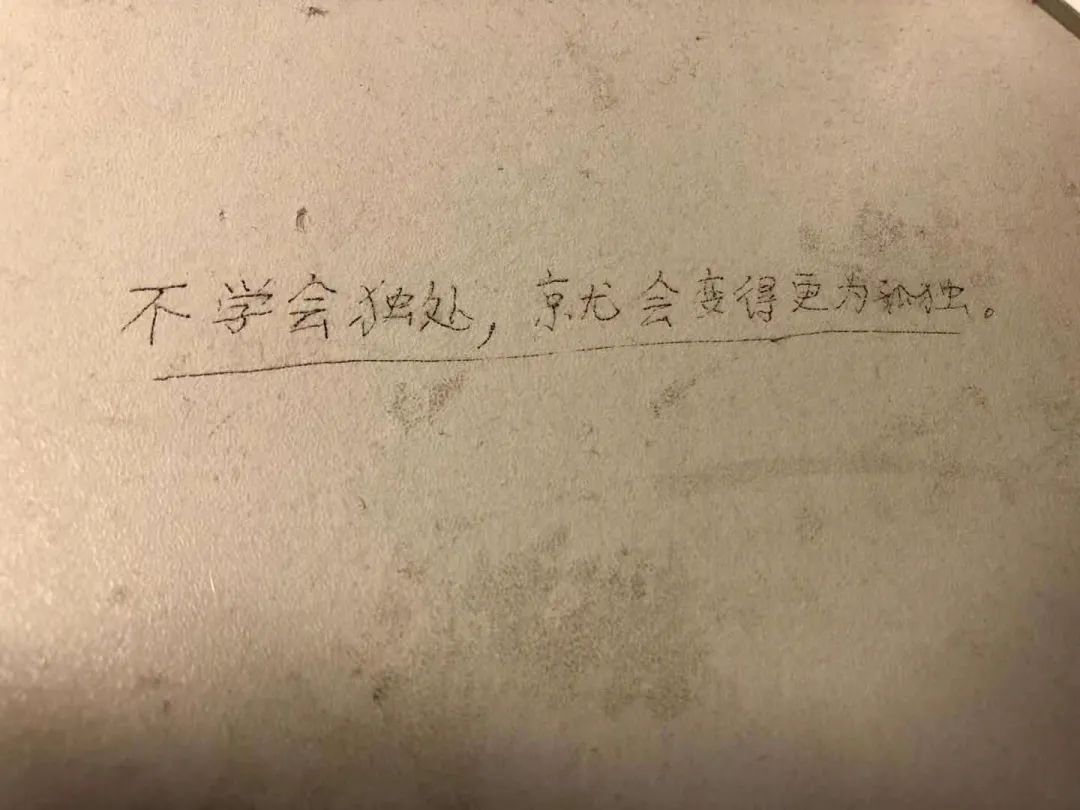 不学会独处，就会变得更为孤独。